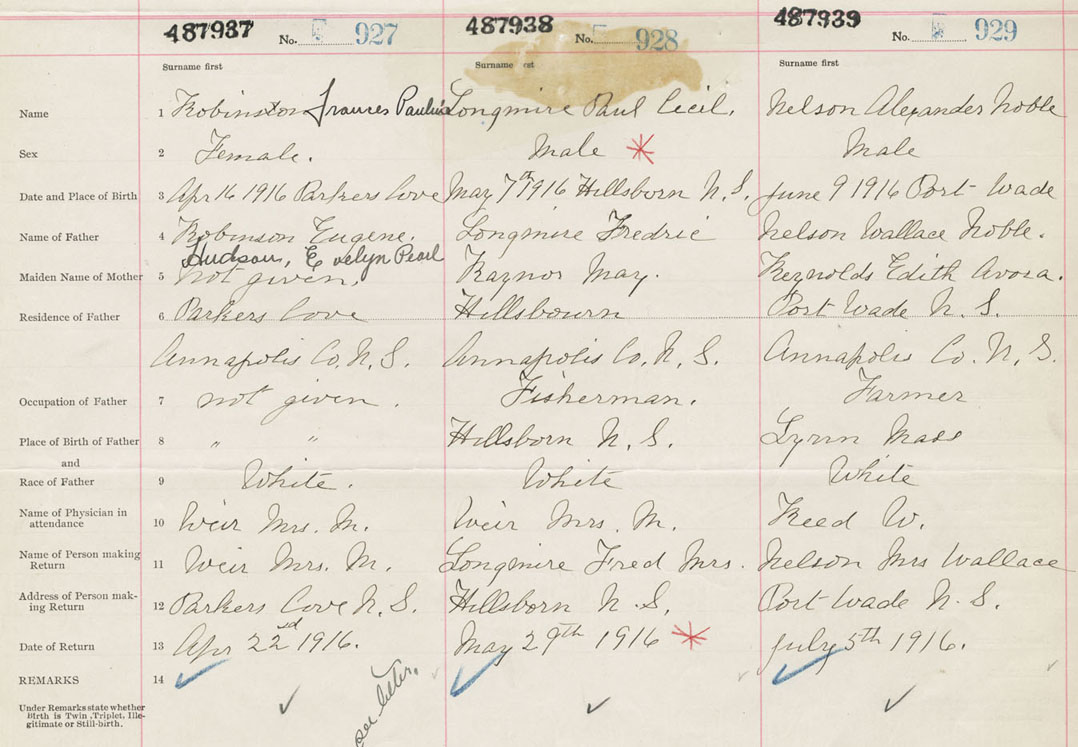 487937 No. 927 487938 No. 928 487939 No. 929
Surname first Surname Surname first
Name 1 Robinston Frances Pauline Longmire Paul Cecil. Nelson Alexander Noble
Sex 2 Female. Male Male
Date and Place of Birth 3 Apr 16 1916 Parkers Cove May 7th 1916 Hillsborn N. S. June 9 1916 Port Wade
Name of Father 4 Robinson Eugene. Longmire Fredric Nelson Wallace Noble.
Hudson, Evelyn Pearl
Maiden Name of Mother 5 not given, Raynor May. Reynolds Edith Avosa.
Residence of Father 6 Parkers Cove Hillsbourn Port Wade N. S.
Annapolis Co, N, S. Annapolis Co, N, S. Annapolis Co. N, S.
Occupation of Father 7 not given. Fisherman. Farmer
Place of Birth of Father 8 " " Hillsborn N, S. Lynn Mass
and
Race of Father 9 White. White White
Name of Physician in
attendance 10 Weir Mrs. M. Weir Mrs. M. Reed W.
Name of Person making
Return 11 Weir Mrs. M. Longmire Fred Mrs. Nelson Mrs Wallace
Address of Person mak-
ing Return 12 Parkers Cove N. S. Hillsborn N. S, Port Wade N. S.
Date of Return 13 Apr 22nd 1916. May 29th 1916 July 5th 1916.
REMARKS 14
see letter.
Under Remarks state whether
Birth is Twin, Triplet, Ille-
gitimate or Still-birth.